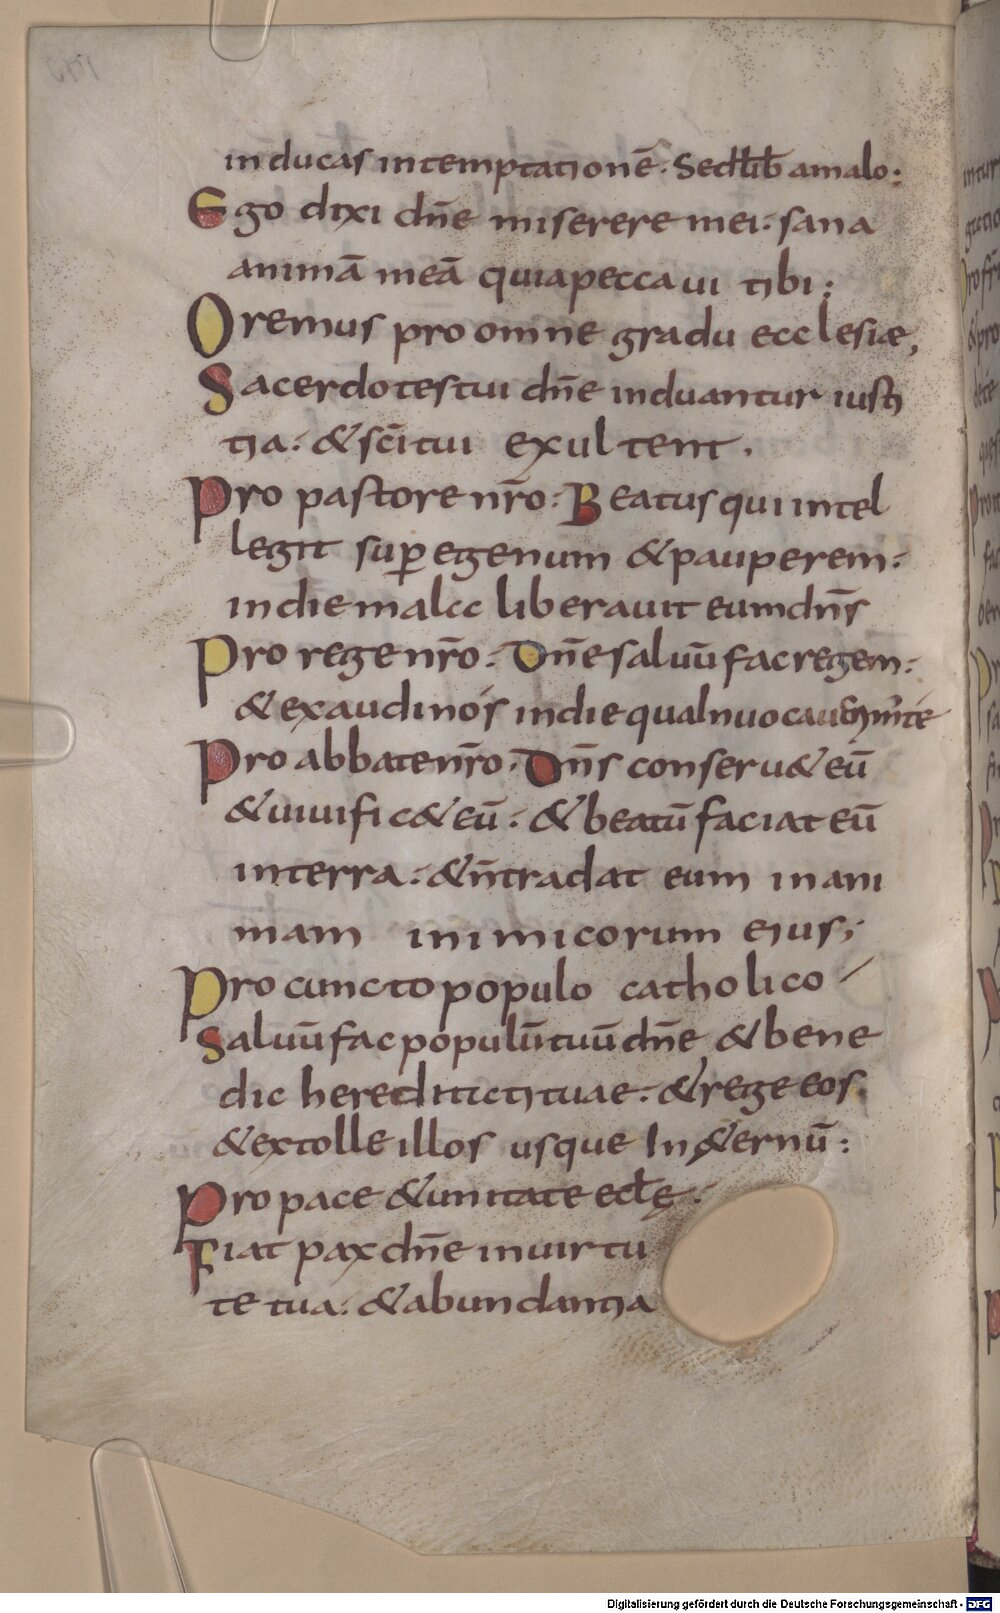 inducas intemptationē. Sed lib̄ amalo:
Ego dixi dn̄e miserere mei: sana
animā meā quiapeccaui tibi:
Oremus pro omne gradu ecclesiæ,
Sacerdotes tui dn̄e induantur iusti
tia: & sc̄i tui exultent.
Pro pastore nr̄o: Beatus qui intel
legit sup̄ egenum & pauperem:
indie mala liberauit eum dn̄s
Pro rege nr̄o: Dn̄e saluū fac regem:
& exaudi nos indie qua
Pro abbate nr̄o. Dn̄s conseru& eū
& uiuific& eū: & beatū faciat eū
interra: & n̄ tradat eum in ani
mam inimicorum eius;
Pro cuncto populo catholico
Saluū fac populū tuū dn̄e & bene
dic hereditati tuae: & rege eos
& extolle illos usque In &ernū:
Pro pace & unitate eccl̄ę.
Fiat pax dn̄e inuirtu
te tua: & abundantia
Digitalisierung gefördert durch die Deutsche Forschungsgemeinschaft - DFG